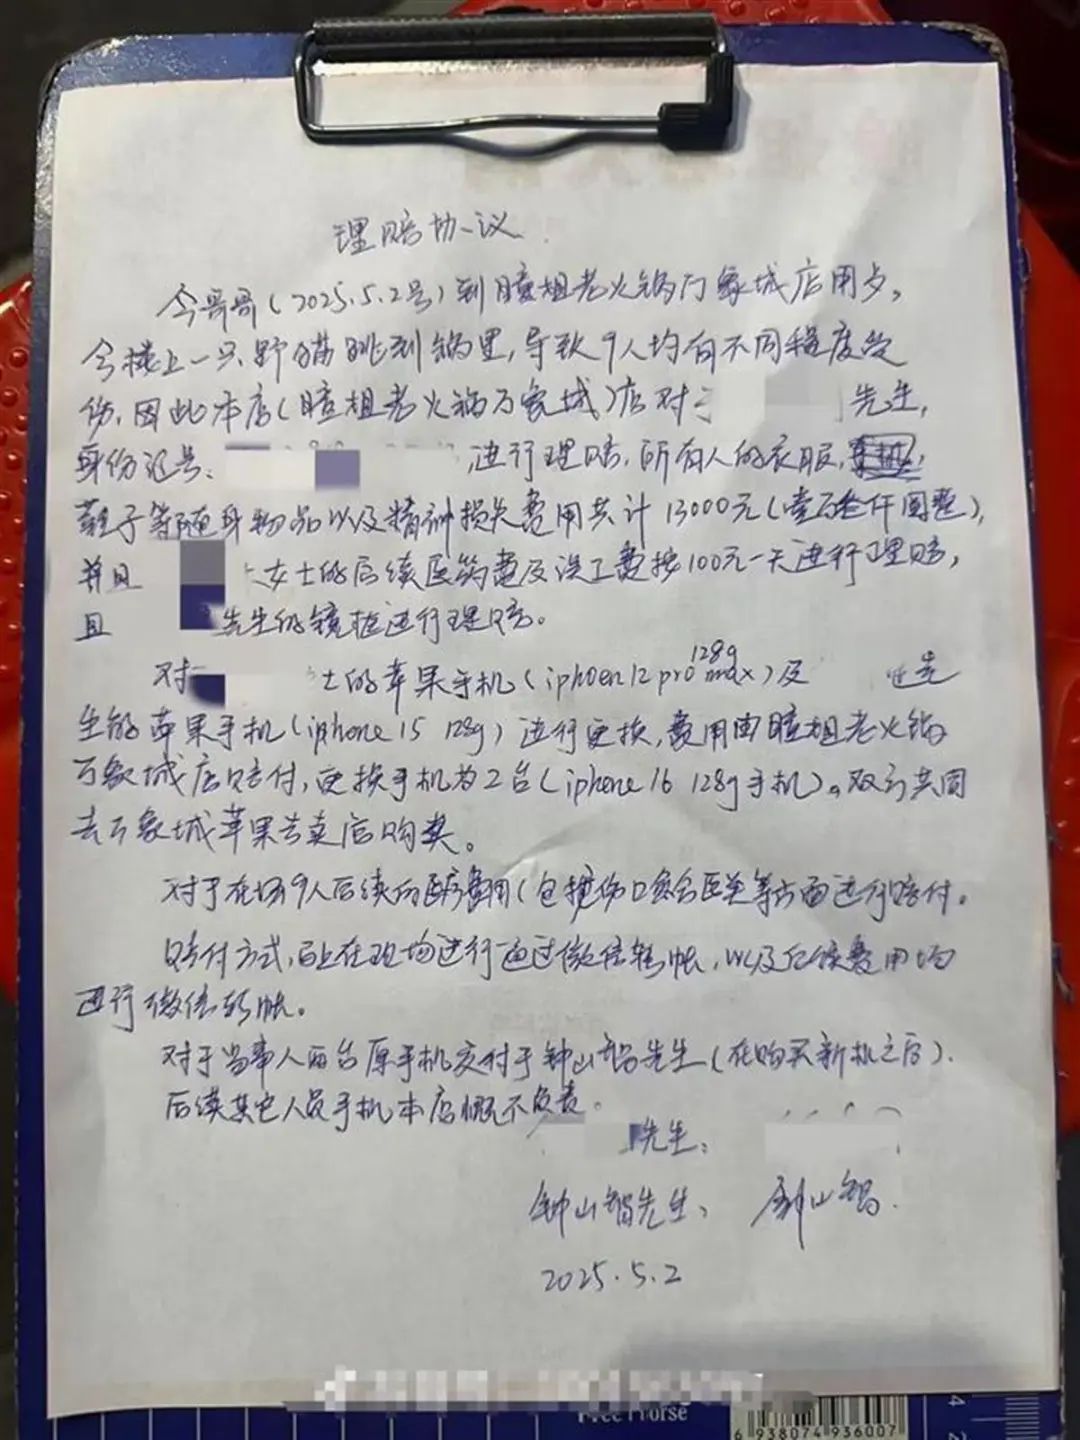 理赔协议
今哥哥(2025.5.2号)到瞳姐老火锅万象城店用歺,
今楼上一只野猫跳到锅里,导致9人均有不同程度受
伤,因此本店(瞳姐老火锅万象城)店对于 先生,
身份证号: ,进行理赔,所有人的衣服,
鞋子等随身物品以及精神损失费用共计13000元(壹万叁仟圆整),
并且 女士的后续医药费及误工费按100元一天进行理赔,
且 先生的镜框进行理赔。
对 士的苹果手机(iphoen12pro max 128g)及 先
生的苹果手机(iphone 15 128g)进行更换,费用由瞳姐老火锅
万象城店赔付,更换手机为2台(iphone 16 128g手机)。双方共同
去万象城苹果专卖店购买。
对于在场9人后续的医疗费用(包括伤口愈合医美等方面进行赔付。
赔付方式,马上在现场进行通过微信转帐,以及后续费用均
进行微信转帐。
对于当事人两台原手机交付于钟山锅先生(在购买新机之后).
后续其它人员手机本店概不负责。
先生:
钟山锅先生: 钟山锅.
2025.5.2
Free Horse
6 938074 936007
4
2